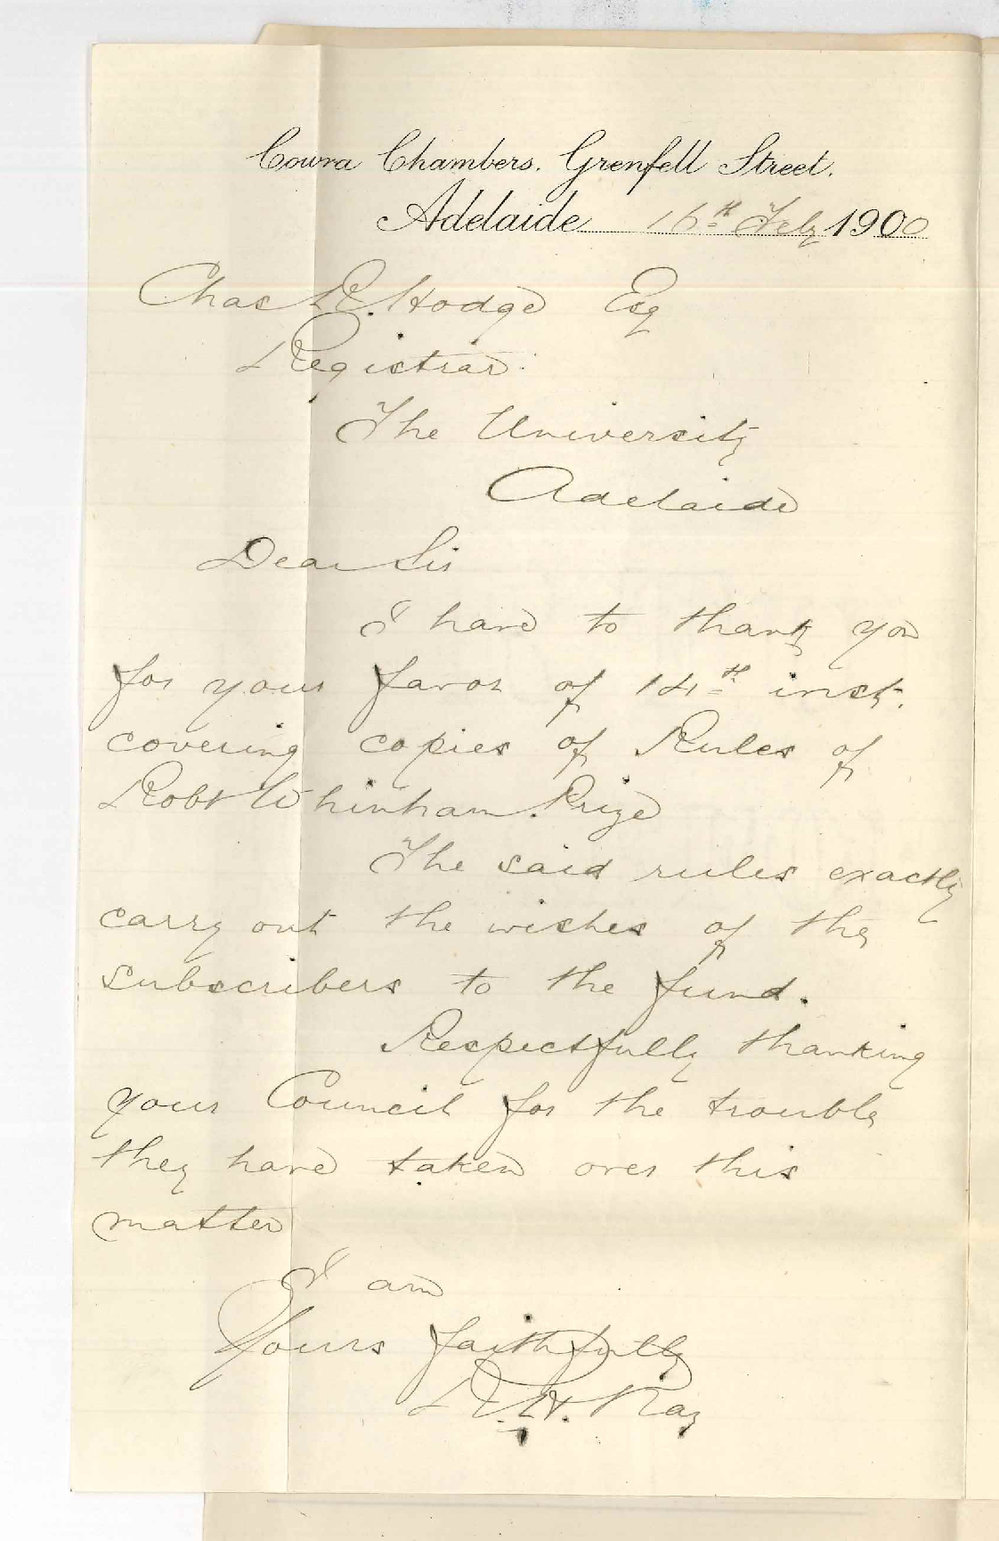 Cowra Chambers. Grenfell Street.
Adelaide 16th Feby 1900
Chas R. Hodge Esq
Registrar
The University
Adelaide
Dear Sir
I have to thank you
for your favor of 14th inst.
covering copies of Rules of
Robt Whinham Prize
The said rules exactly
carry out the wishes of the
subscribers to the fund.
Respectfully thanking
your Council for the trouble
they have taken over this
matter
I am
Yours faithfully